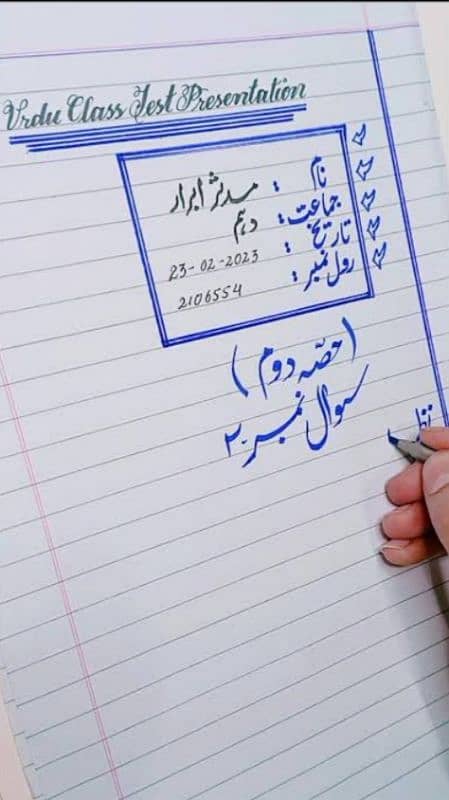 Urdu Class Test Presentation
نام : مدثر ابرار
جماعت : دہم
تاریخ : 23-02-2023
رول نمبر : 2106554
(حصّہ دوم)
سوال نمبر ۲-